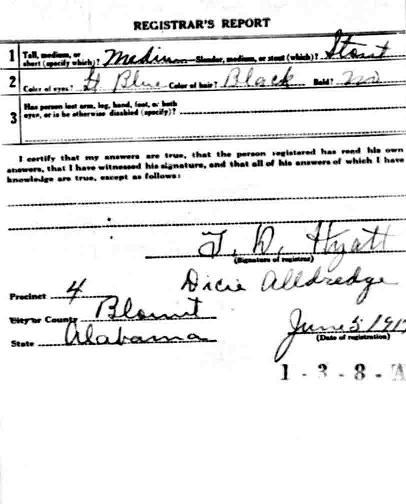 REGISTRAR'S REPORT
1 Tall, medium, or short (specify which)? Medium Slender, medium, or stout (which)? Stout
2 Color of eyes? Lt Blue Color of hair? Black Bald? No
3 Has person lost arm, leg, hand, foot, or both eyes, or is he otherwise disabled (specify)?
I certify that my answers are true, that the person registered has read his own
answers, that I have witnessed his signature, and that all of his answers of which I have
knowledge are true, except as follows:
T. D. Hyatt
(Signature of registrar)
Dicie Alldredge
Precinct 4
City or County Blount
State Alabama
June 5 191
(Date of registration)
1 - 3 - 8 - A